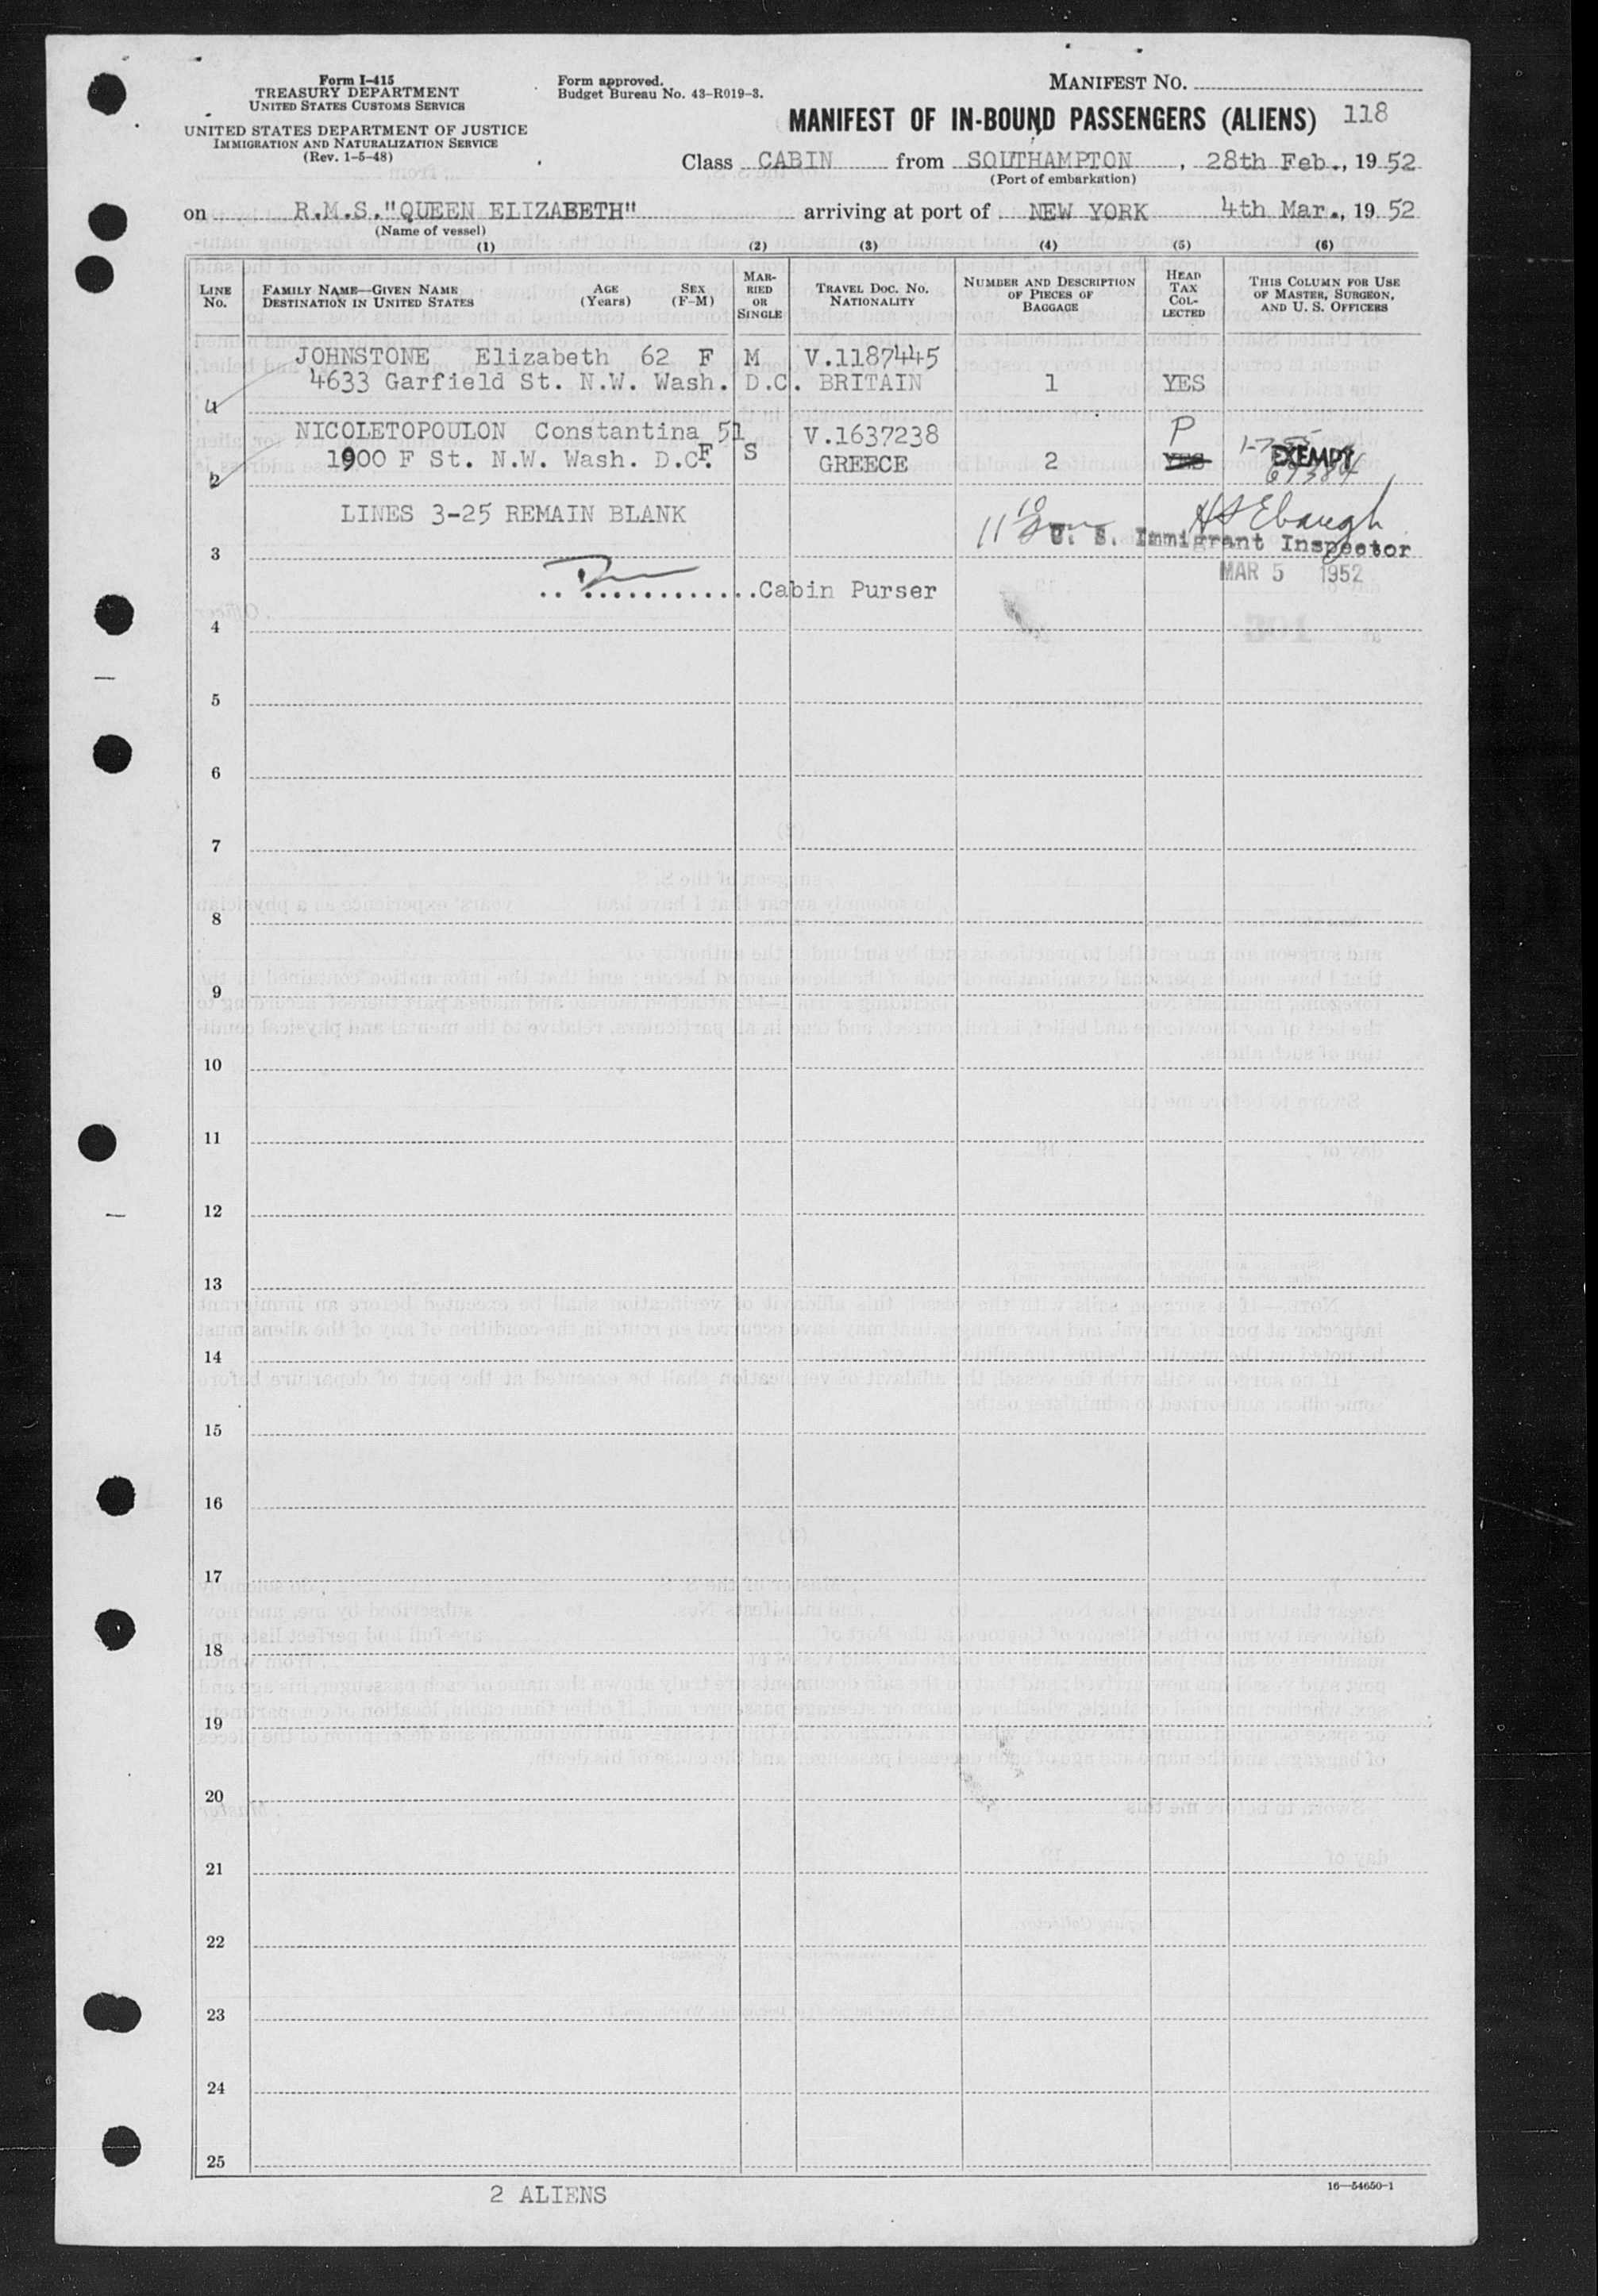 Form I-415
TREASURY DEPARTMENT
UNITED STATES CUSTOMS SERVICE
UNITED STATES DEPARTMENT OF JUSTICE
IMMIGRATION AND NATURALIZATION SERVICE
(Rev. 1-5-48)
Form approved.
Budget Bureau No. 43-R019-3.
MANIFEST NO.
MANIFEST OF IN-BOUND PASSENGERS (ALIENS) 118
Class CABIN from SOUTHAMPTON, 28th Feb., 1952
(Port of embarkation)
on R.M.S."QUEEN ELIZABETH" arriving at port of NEW YORK 4th Mar., 1952
(Name of vessel)
(1) (2) (3) (4) (5) (6)
LINE NO. FAMILY NAME—GIVEN NAME DESTINATION IN UNITED STATES AGE (Years) SEX (F-M) MARRIED OR SINGLE TRAVEL DOC. NO. NATIONALITY NUMBER AND DESCRIPTION OF PIECES OF BAGGAGE HEAD TAX COLLECTED THIS COLUMN FOR USE OF MASTER, SURGEON, AND U. S. OFFICERS
JOHNSTONE Elizabeth 62 F M V.1187445
4633 Garfield St. N.W. Wash. D.C. BRITAIN 1 YES
NICOLETOPOULON Constantina 51 V.1637238 P
1900 F St. N.W. Wash. D.C. F S GREECE 2 YES EXEMPT
2
LINES 3-25 REMAIN BLANK
H S Ebaugh
U. S. Immigrant Inspector
3
MAR 5 1952
..............Cabin Purser
4
5
6
7
8
9
10
11
12
13
14
15
16
17
18
19
20
21
22
23
24
25
2 ALIENS
16—54650-1